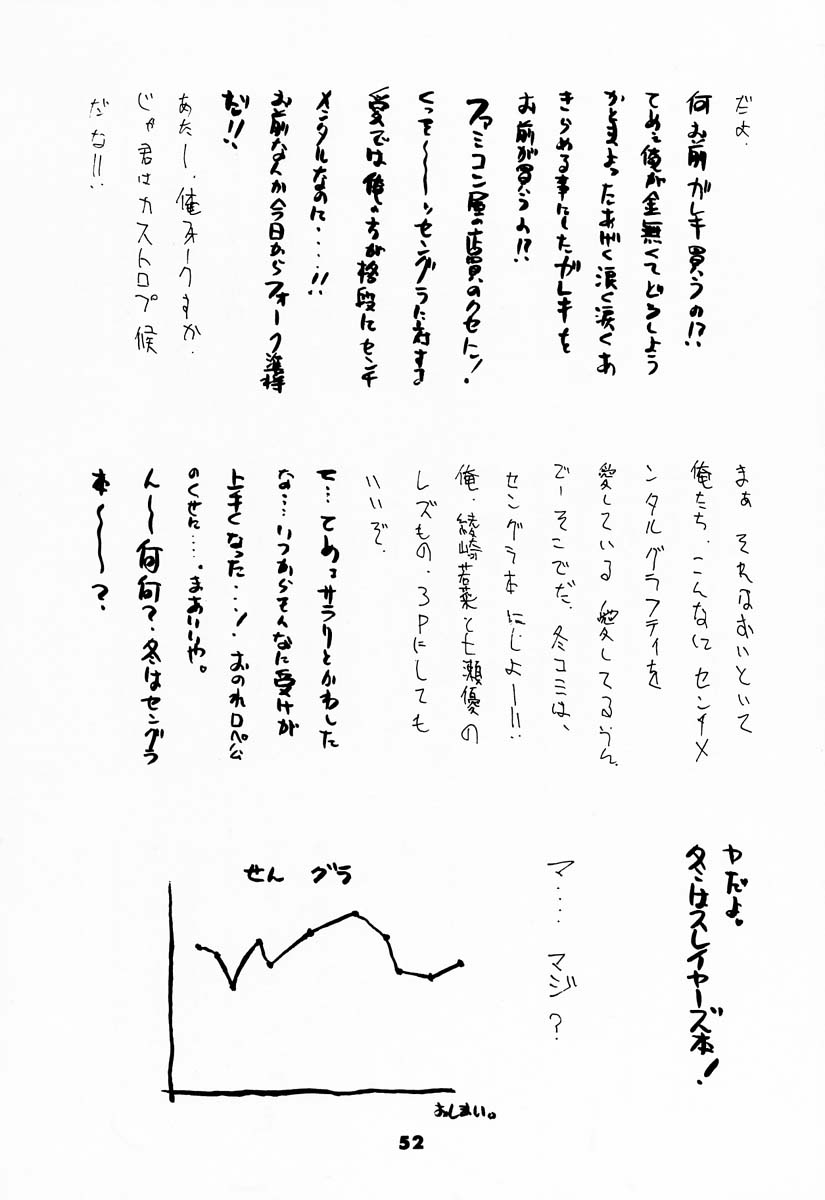 だよ.
何お前ガレキ買うの!?
てめェ俺が金無くてどうしよう
かとまよったあげく泪く涙くあ
きらめる事にしたガレキを
お前が買うの!?
ファミコン屋の店員のクセに!
くっそ〜〜〜ッセングラに対する
愛では俺の方が格段にセンチ
メンタルなのに‥‥!!
お前なんか今日からフォーク準将
だ!!
あたー.俺フォークすか.
じゃ君はカストロプ候
だな!!
まぁ それはおいといて
俺たち.こんなに センチメ
ンタル グラフティを
愛している 愛してるうん.
でーそこでだ.冬コミは、
セングラ本 にしよー!!
俺.綾崎若菜と七瀬優の
レズもの.3Pにしても
いいぞ.
て…てめェサラリとかわした
な…いつからそんなに受けが
上手くなった‥!おのれロペ公
のくせに….まあいいや。
ん〜何何?.冬はセングラ
本〜〜〜?.
ヤだよ。
冬はスレイヤーズ本!
マ‥‥ マジ?
せん グラ
おしまい。
52